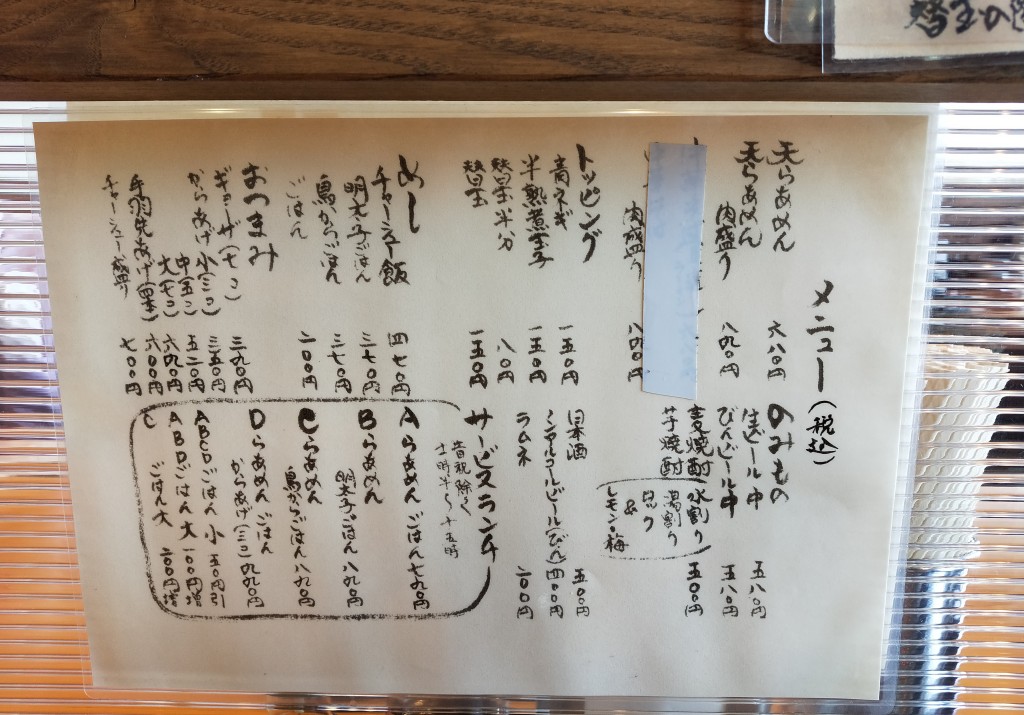 替玉の
メニュー(税込)
天らあめん 六八〇円
天らあめん
肉盛り 八九〇円
肉盛り 八九〇円
トッピング
高ネギ 一五〇円
半熟煮玉子 一五〇円
替玉半分 八〇円
替玉 一五〇円
めし
チャーシュー飯 四七〇円
明太子ごはん 三七〇円
鳥からごはん 三七〇円
ごはん 二〇〇円
おつまみ
ギョーザ(七コ) 三九〇円
からあげ小(三コ) 三五〇円
中(五コ) 五二〇円
大(七コ) 六九〇円
手羽先あげ(四本) 六〇〇円
チャーシュー盛り 七〇〇円
のみもの
生ビール中 五八〇円
びんビール中 五八〇円
麦焼酎 水割り 五〇〇円
芋焼酎 湯割り
ロック
&
レモン・梅
日本酒 五〇〇円
ノンアルコールビール(びん) 四〇〇円
ラムネ 二〇〇円
サービスランチ
昔祝除く
十一時半〜十五時
Aらあめん ごはん 七九〇円
Bらあめん
明太子ごはん 八九〇円
Cらあめん
鳥からごはん 八九〇円
Dらあめん ごはん
からあげ(三コ) 九九〇円
ABCDごはん 小 五〇円引
ABDごはん 大 一〇〇円増
C ごはん大 二〇〇円増